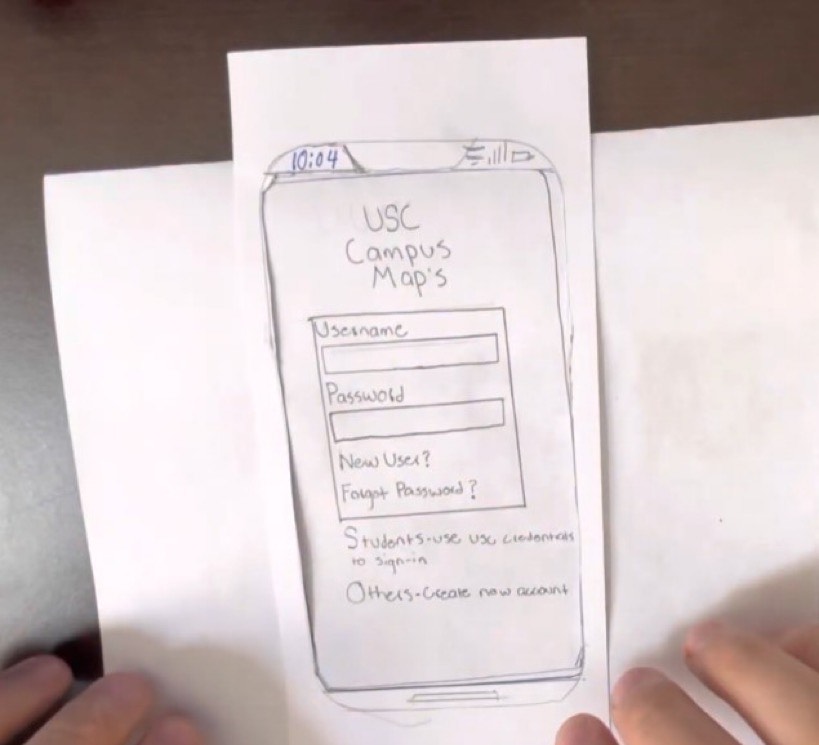 10:04
USC
Campus
Map's
Username
Password
New User?
Forgot Password?
Students-use USC credentials
to sign-in
Others-Create new account